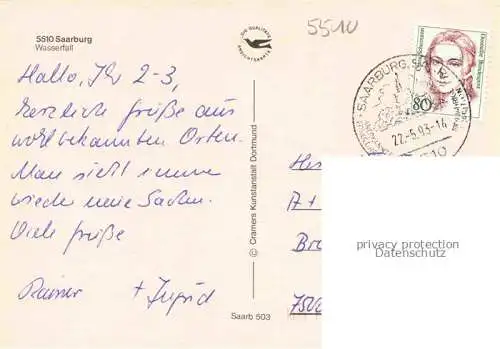 5510 Saarburg
Wasserfall
5510
Hallo, Ihr 2-3,
herzliche Grüße aus
wohlbekannten Orten.
Man sieht immer
wieder neue Sachen.
Viele Grüße
Rainer + Ingrid
© Cramers Kunstanstalt Dortmund
Saarb 503
SAARBURG
22.-5.93-14
80
Deutsche Bundespost
He
A +
Br
privacy protection
Datenschutz